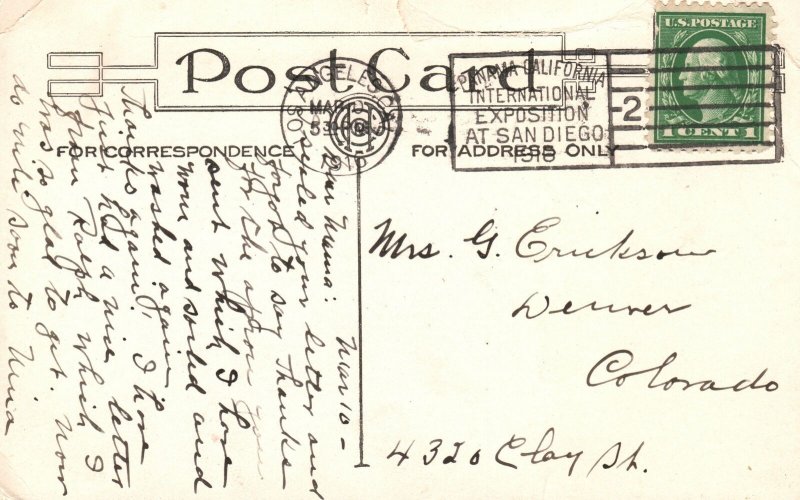 Post Card
FOR CORRESPONDENCE
FOR ADDRESS ONLY
ANGELES, CA
MAR
1916
PANAMA CALIFORNIA
INTERNATIONAL
EXPOSITION
AT SAN DIEGO
1916
2
U.S. POSTAGE
1 CENT 1
Mar 10 -
Dear Mama:
I sealed your letter and
forgot to say thanks
for the apron you
sent which I have
worn and soiled and
washed again.
thanks again. I have
just had a nice letter
from Ralph which I
was so glad to get. Now
do write soon to Mina
Mrs. G. Erickson
Denver
Colorado
4320 Clay St.